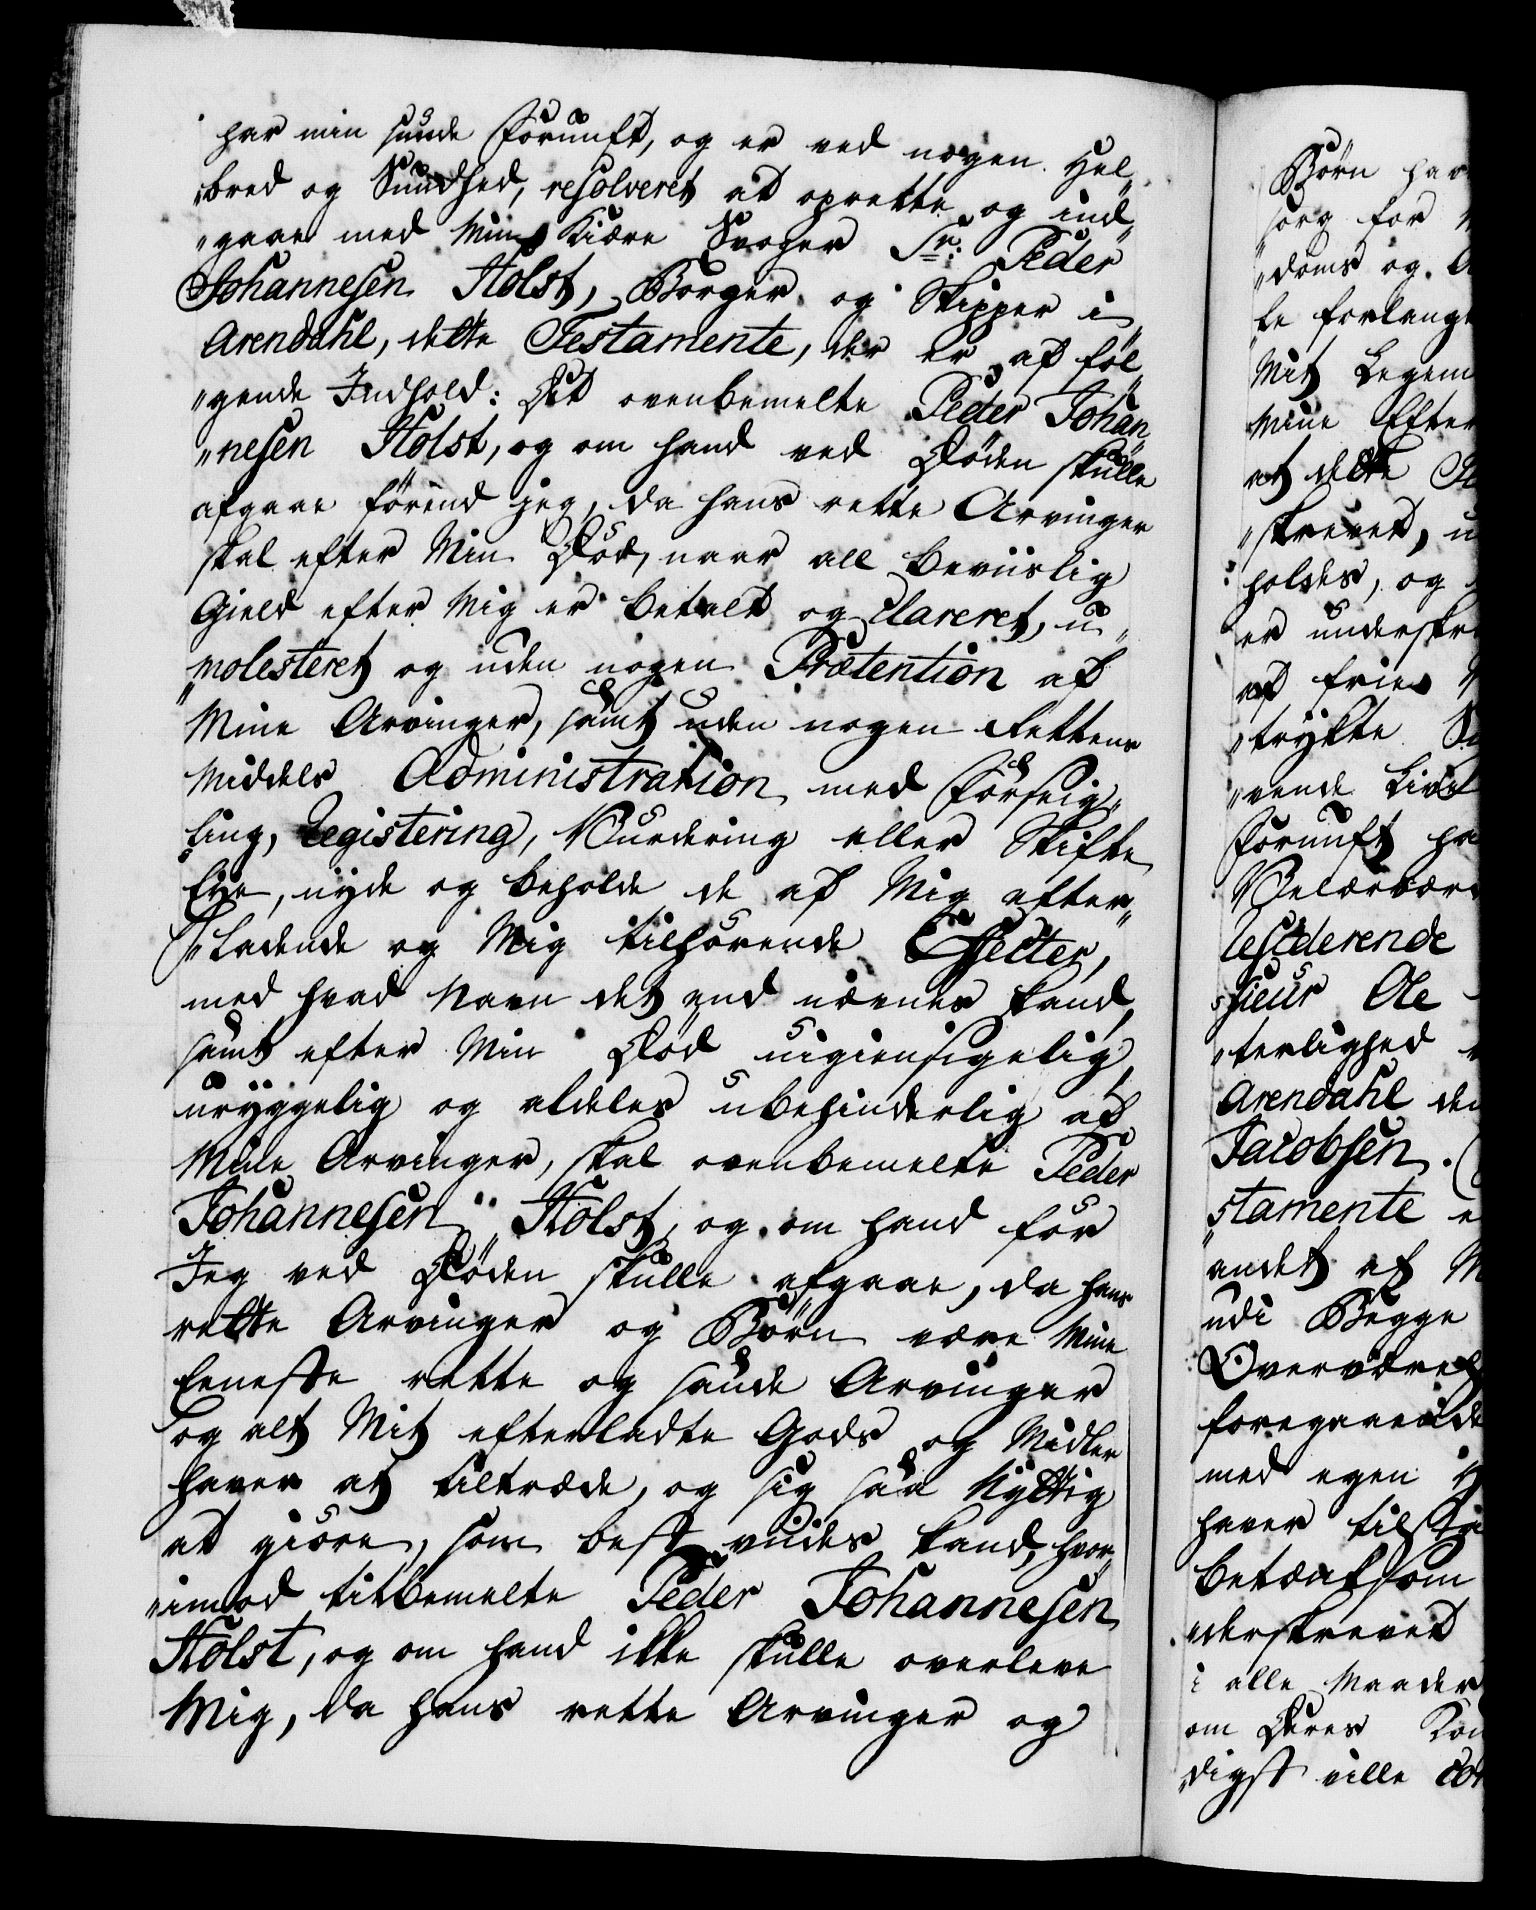 har min sunde Fornuft, og er ved nogen Hel„
„bred og Sundhed, resolveret at oprette og ind„
„gaae med Min Kiære Svoger Sr: Peder
Johannesen Holst, Borger og Skipper i
Arendahl, dette Testamente, der er af føl„
„gende Indhold: At ovenbemelte Peder Johan„
„nesen Holst, og om hand ved Døden skulle
afgaae förend jeg, da hans rette Arvinger
skal efter Min Død, naar all beviislig
Gield efter Mig er betalt og clareret, u„
„molesteret og uden nogen Prætention af
Mine Arvinger, samt uden nogen Rettens
Middels Administration med Forseig„
„ling, Registering, Vurdering eller Skifte
Eye, nyde og beholde de af Mig efter„
„ladende og Mig tilhörende Effecter,
med hvad Navn det end nævnes kand,
samt efter Min Död uigiensigelig
uryggelig og aldeles ubehinderlig af
Mine Arvinger, skal ovenbemelte Peder
Johannesen Holst, og om hand för
Jeg ved Døden skulle afgaae, da hans
rette Arvinger og Börn være Mine
Eeneste rette og sande Arvinger
og alt Mit efterladte Gods og Midler
haver at tiltræde, og sig saa Nyttig
at giöre, som best vides kand, hvor„
„imod titbemelte Peder Johannesen
Holst, og om hand ikke skulle overleve
Mig, da hans rette Arvinger og
Börn har
sorg for
„doms og
le forlange
Mit Legem
Mine Efter
at dette
„skrevet,
holdes, og
er underskre
af frie
„trykte
„vende
Fornuft ha
Velærbær
residerende
„sieur Ole
„terlighed
Arendahl den
Jacobsen.
„stamente
andet af
udi Begge
Overværel
foregaaende
med egen
haver tilstaa
betænksom
„derskrevet
i alle Maader
om Deres Kon
„digst ville con